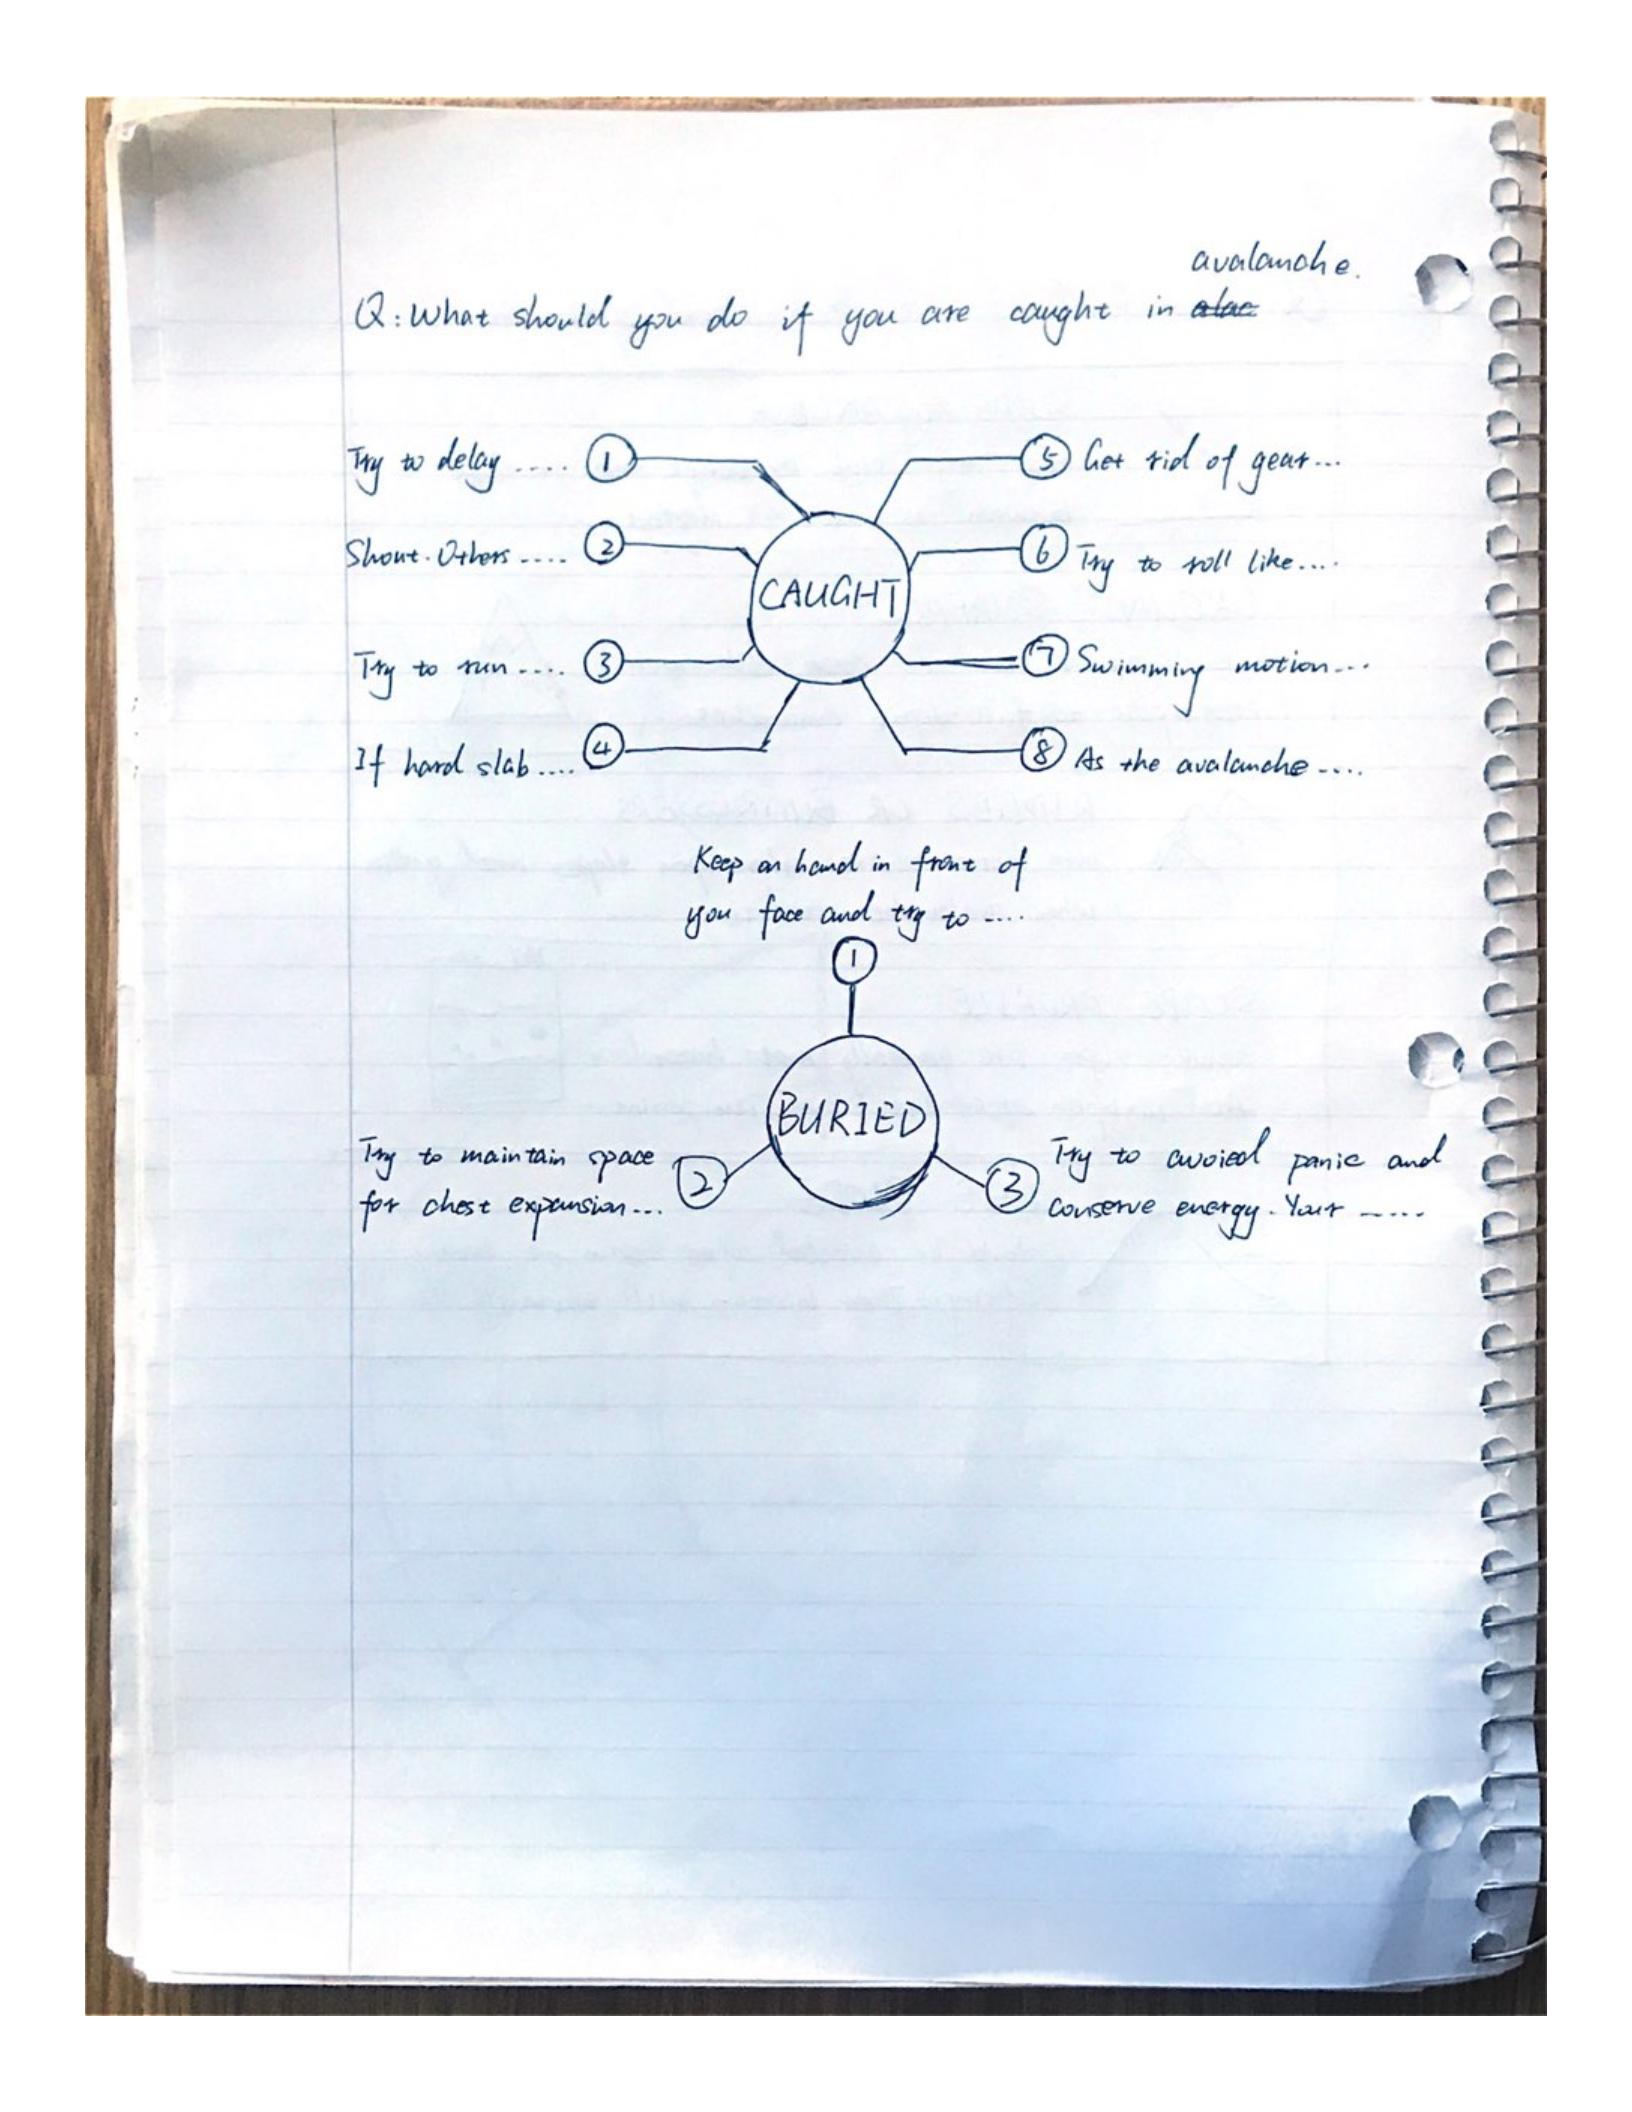 avalanche.
Q: What should you do if you are caught in alac
Try to delay .... 1
Shout. Others .... 2
Try to run .... 3
If hard slab .... 4
CAUGHT
5 Get rid of gear...
6 Try to roll like....
7 Swimming motion...
8 As the avalanche ....
Keep an hand in front of
you face and try to ....
1
BURIED
Try to maintain space
for chest expansion... 2
3 Try to avoied panic and
conserve energy. Your .....